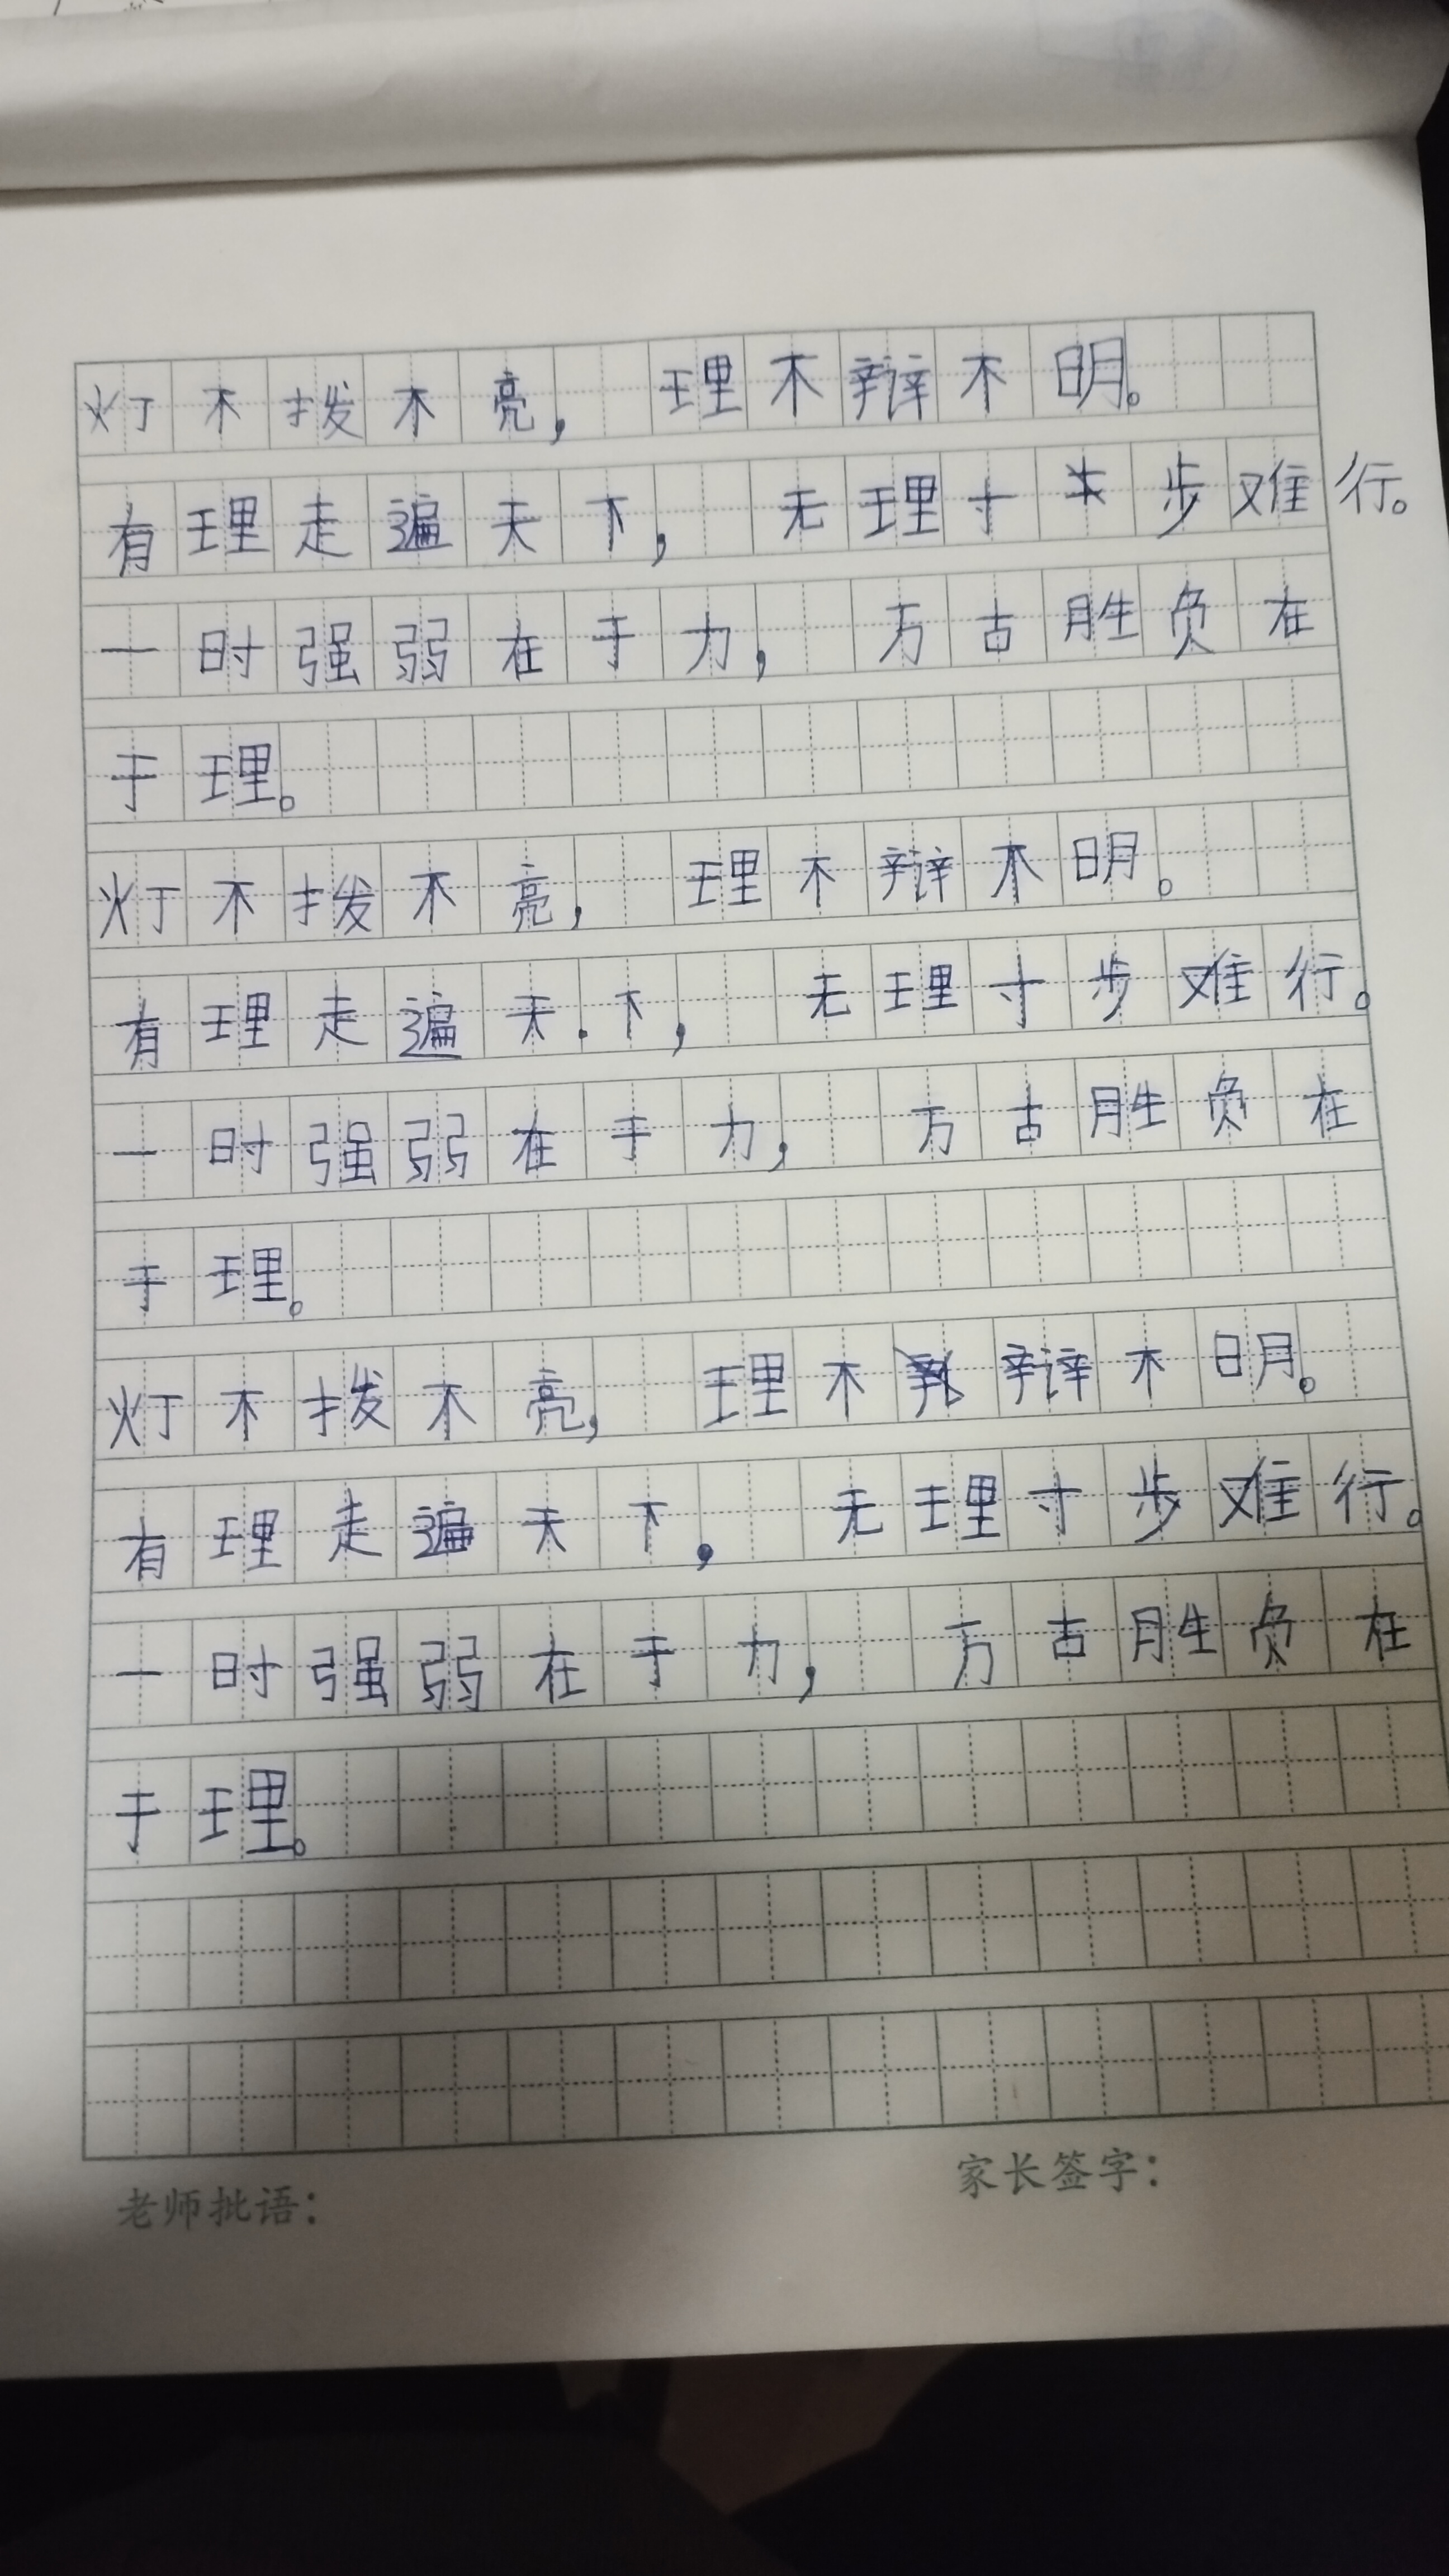 灯不拨不亮，理不辩不明。
有理走遍天下，无理寸步难行。
一时强弱在于力，万古胜负在
于理。
灯不拨不亮，理不辩不明。
有理走遍天.下，无理寸步难行。
一时强弱在于力，万古胜负在
于理。
灯不拨不亮，理不辩不明。
有理走遍天下，无理寸步难行。
一时强弱在于力，万古胜负在
于理。
老师批语：
家长签字：